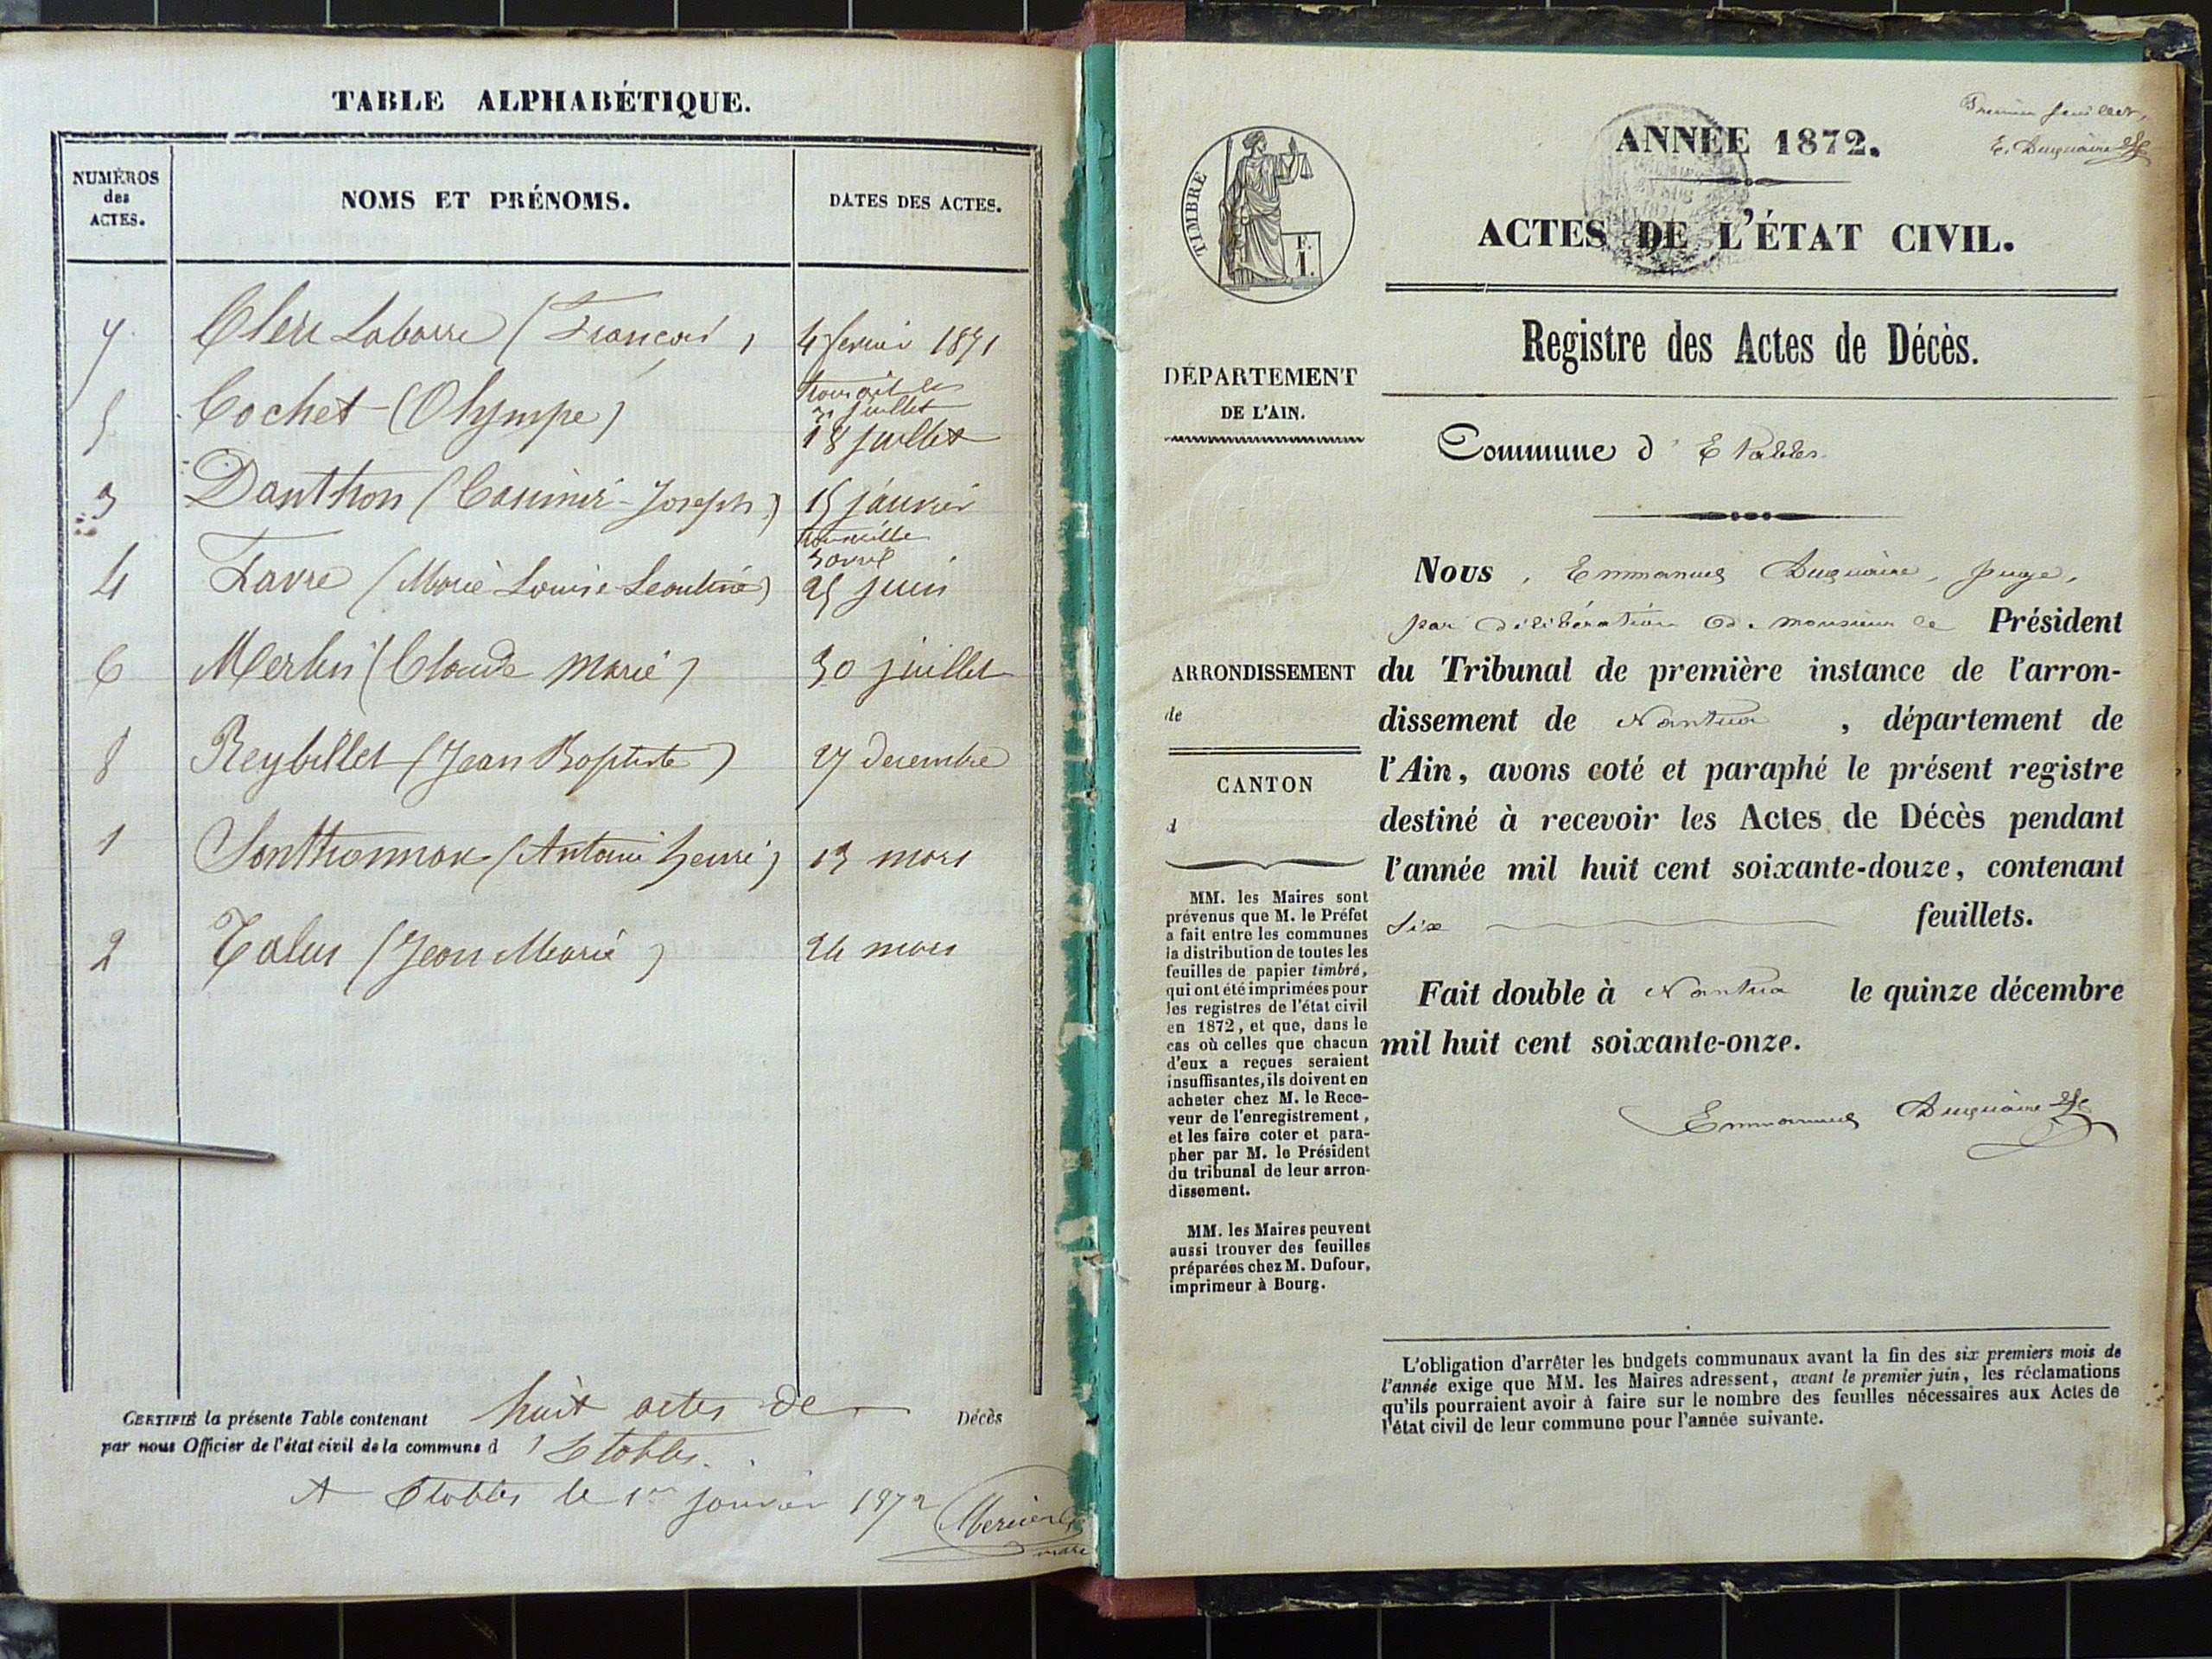 TABLE ALPHABÉTIQUE.
NUMÉROS des ACTES.
NOMS ET PRÉNOMS.
DATES DES ACTES.
7 Clerc Labarre (François) 4 fevrier 1871
transcrit le
31 juillet
5 Cochet (Olympe) 18 juillet
3 Danthon (Casimir-Joseph) 15 janvier
3 avril
4 Favre (Marie Louise Leontine) 25 juin
6 Merlin (Claude Marie) 30 juillet
8 Reybillet (Jean Baptiste) 27 decembre
1 Sonthonnax (Antoine henri) 13 mars
2 (Jean Marie) 24 mars
CERTIFIÉ la présente Table contenant huit actes de Décès
par nous Officier de l'état civil de la commune d'Etables.
A Etables le 1er janvier 1872
Mercier
maire
Premier feuillet,
ANNÉE 1872.
ACTES DE L'ÉTAT CIVIL.
TIMBRE
F.
1.
Registre des Actes de Décès.
DÉPARTEMENT
DE L'AIN.
Commune d'Etables
Nous, Emmanuel Duquaire, juge,
par délibération de monsieur le Président
ARRONDISSEMENT
de
CANTON
d
du Tribunal de première instance de l'arron-
dissement de Nantua, département de
l'Ain, avons coté et paraphé le présent registre
destiné à recevoir les Actes de Décès pendant
l'année mil huit cent soixante-douze, contenant
six feuillets.
Fait double à Nantua le quinze décembre
mil huit cent soixante-onze.
Emmanuel Duquaire
MM. les Maires sont
prévenus que M. le Préfet
a fait entre les communes
la distribution de toutes les
feuilles de papier timbré,
qui ont été imprimées pour
les registres de l'état civil
en 1872, et que, dans le
cas où celles que chacun
d'eux a reçues seraient
insuffisantes, ils doivent en
acheter chez M. le Rece-
veur de l'enregistrement,
et les faire coter et para-
pher par M. le Président
du tribunal de leur arron-
dissement.
MM. les Maires peuvent
aussi trouver des feuilles
préparées chez M. Dufour,
imprimeur à Bourg.
L'obligation d'arrêter les budgets communaux avant la fin des six premiers mois de
l'année exige que MM. les Maires adressent, avant le premier juin, les réclamations
qu'ils pourraient avoir à faire sur le nombre des feuilles nécessaires aux Actes de
l'état civil de leur commune pour l'année suivante.